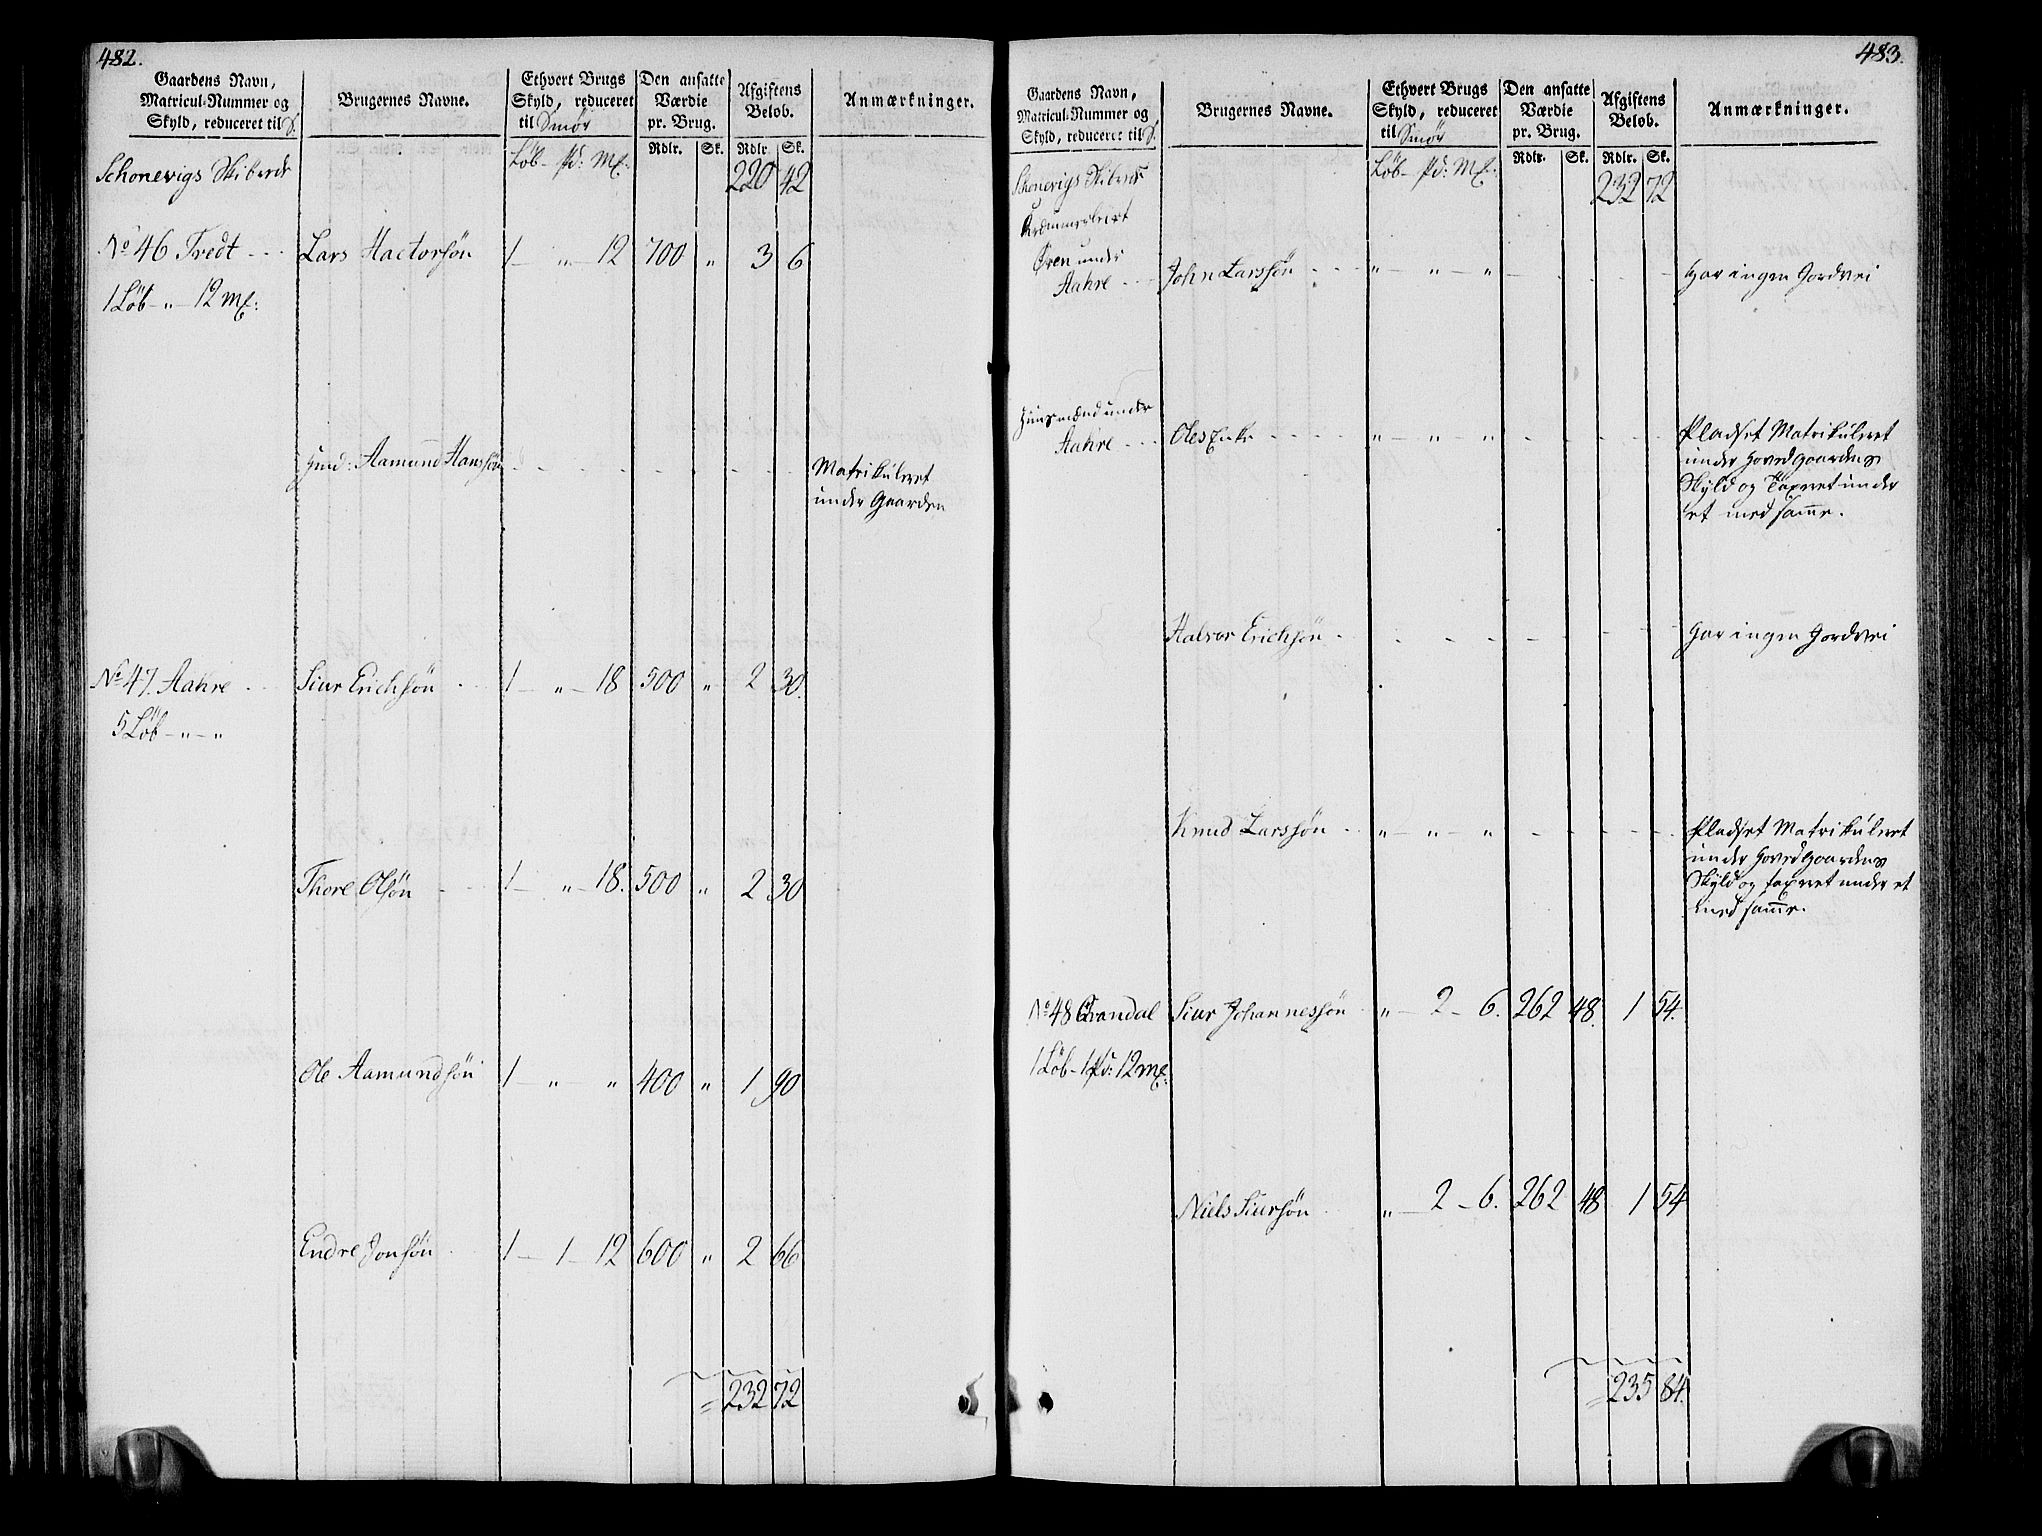 482.
Gaardens Navn, Matricul-Nummer og Skyld, reduceret til S. | Brugernes Navne. | Ethvert Brugs Skyld, reduceret til Smør | Den ansatte Værdie pr. Brug. | Afgiftens Beløb. | Anmærkninger.
Rdlr. Sk. Rdlr. Sk.
Schonevigs Skibrede Löb - pd: Mk: 220 42
No 46 Tredt - - - Lars Hactorsøn 1 - „ - 12 700 „ 3 6
1 Löb - „ - 12 Mk:
Huusmd: Aamund Hanssøn - - - - - - - Matrikuleret
under Gaarden
No 47. Aahre - - Siur Erichsøn - - 1 - „ - 18 500 „ 2 30.
5 Löb - „ - „
Thore Olsøn - - - 1 - „ - 18. 500 „ 2 30
Ole Aamundsøn 1 - „ „ 400 „ 1 90
Endre Jonsøn - 1 - 1 - 12 600 „ 2 66
= 232 72
483.
Gaardens Navn, Matricul-Nummer og Skyld, reduceret til S. | Brugernes Navne. | Ethvert Brugs Skyld, reduceret til Smør | Den ansatte Værdie pr. Brug. | Afgiftens Beløb. | Anmærkninger.
Rdlr. Sk. Rdlr. Sk.
Schonevigs Skibrede Löb - pd: Mk: 232 72
Øren under
Aahre - - - John Larssøn - - - „ - „ - „ - - - - - Har ingen Jordvei
Huusmænd under
Aahre - - - Oles Enke - - - - „ - „ - „ - - - - - Pladset Matrikuleret
under Hovedgaardens
Skyld og Taxeret under
et med samme.
Halvor Erichsøn - - - - - - - - Har ingen Jordvei
Knud Larssøn - - „ - „ - „ - - - - - Pladset Matrikuleret
under Hovedgaardens
Skyld og taxeret under et
med samme.
No 48 Qvandal Siur Johannessøn - „ - 2 - 6. 262 48. 1 54.
1 Löb - 1 Pd: 12 Mk:
Niels Siursøn - „ - 2 - 6. 262 48 1 54
= 235 84.